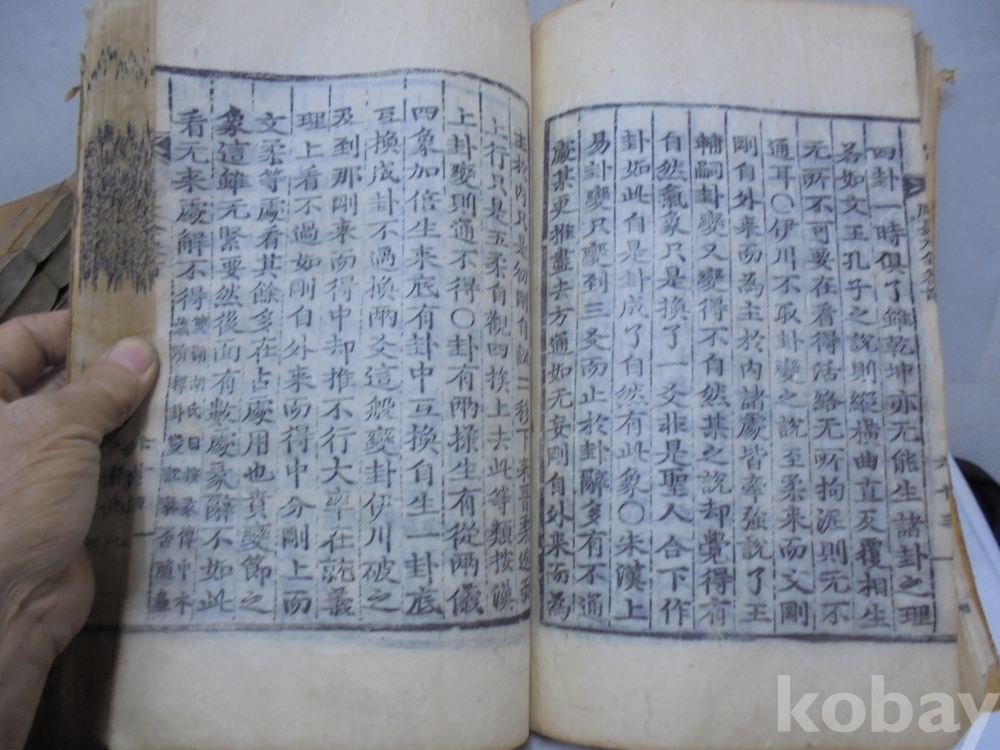 四卦一時俱了雖乾坤亦无能生諸卦之理
若如文王孔子之說則縱橫曲直反覆相生
无所不可要在看得活絡无所拘泥則无不
通耳○伊川不取卦變之說至柔來而文剛
剛自外来而為主於內諸處皆牽強說了王
輔嗣卦變又變得不自然某之說却覺得有
自然氣象只是換了一爻非是聖人合下作
卦如此自是卦成了自然有此象○朱漢上
易卦變只變到三爻而止於卦辭多有不通
處某更推盡去方通如无妄剛自外来而為
主於內只是初剛自訟二移下来晋柔進而
上行只是五柔自觀四挨上去此等類按漢
上卦變則通不得○卦有兩揲生有從兩儀
四象加倍生來底有卦中互換自生一卦底
互換成卦不過換兩爻這般變卦伊川破之
及到那剛来而得中却推不行大率在就義
理上看不過如剛自外来而得中分剛上而
文柔等處看其餘多在占處用也賁變節之
象這雖无緊要然後面有數處彖辭不如此
看无来處解不得
六十三